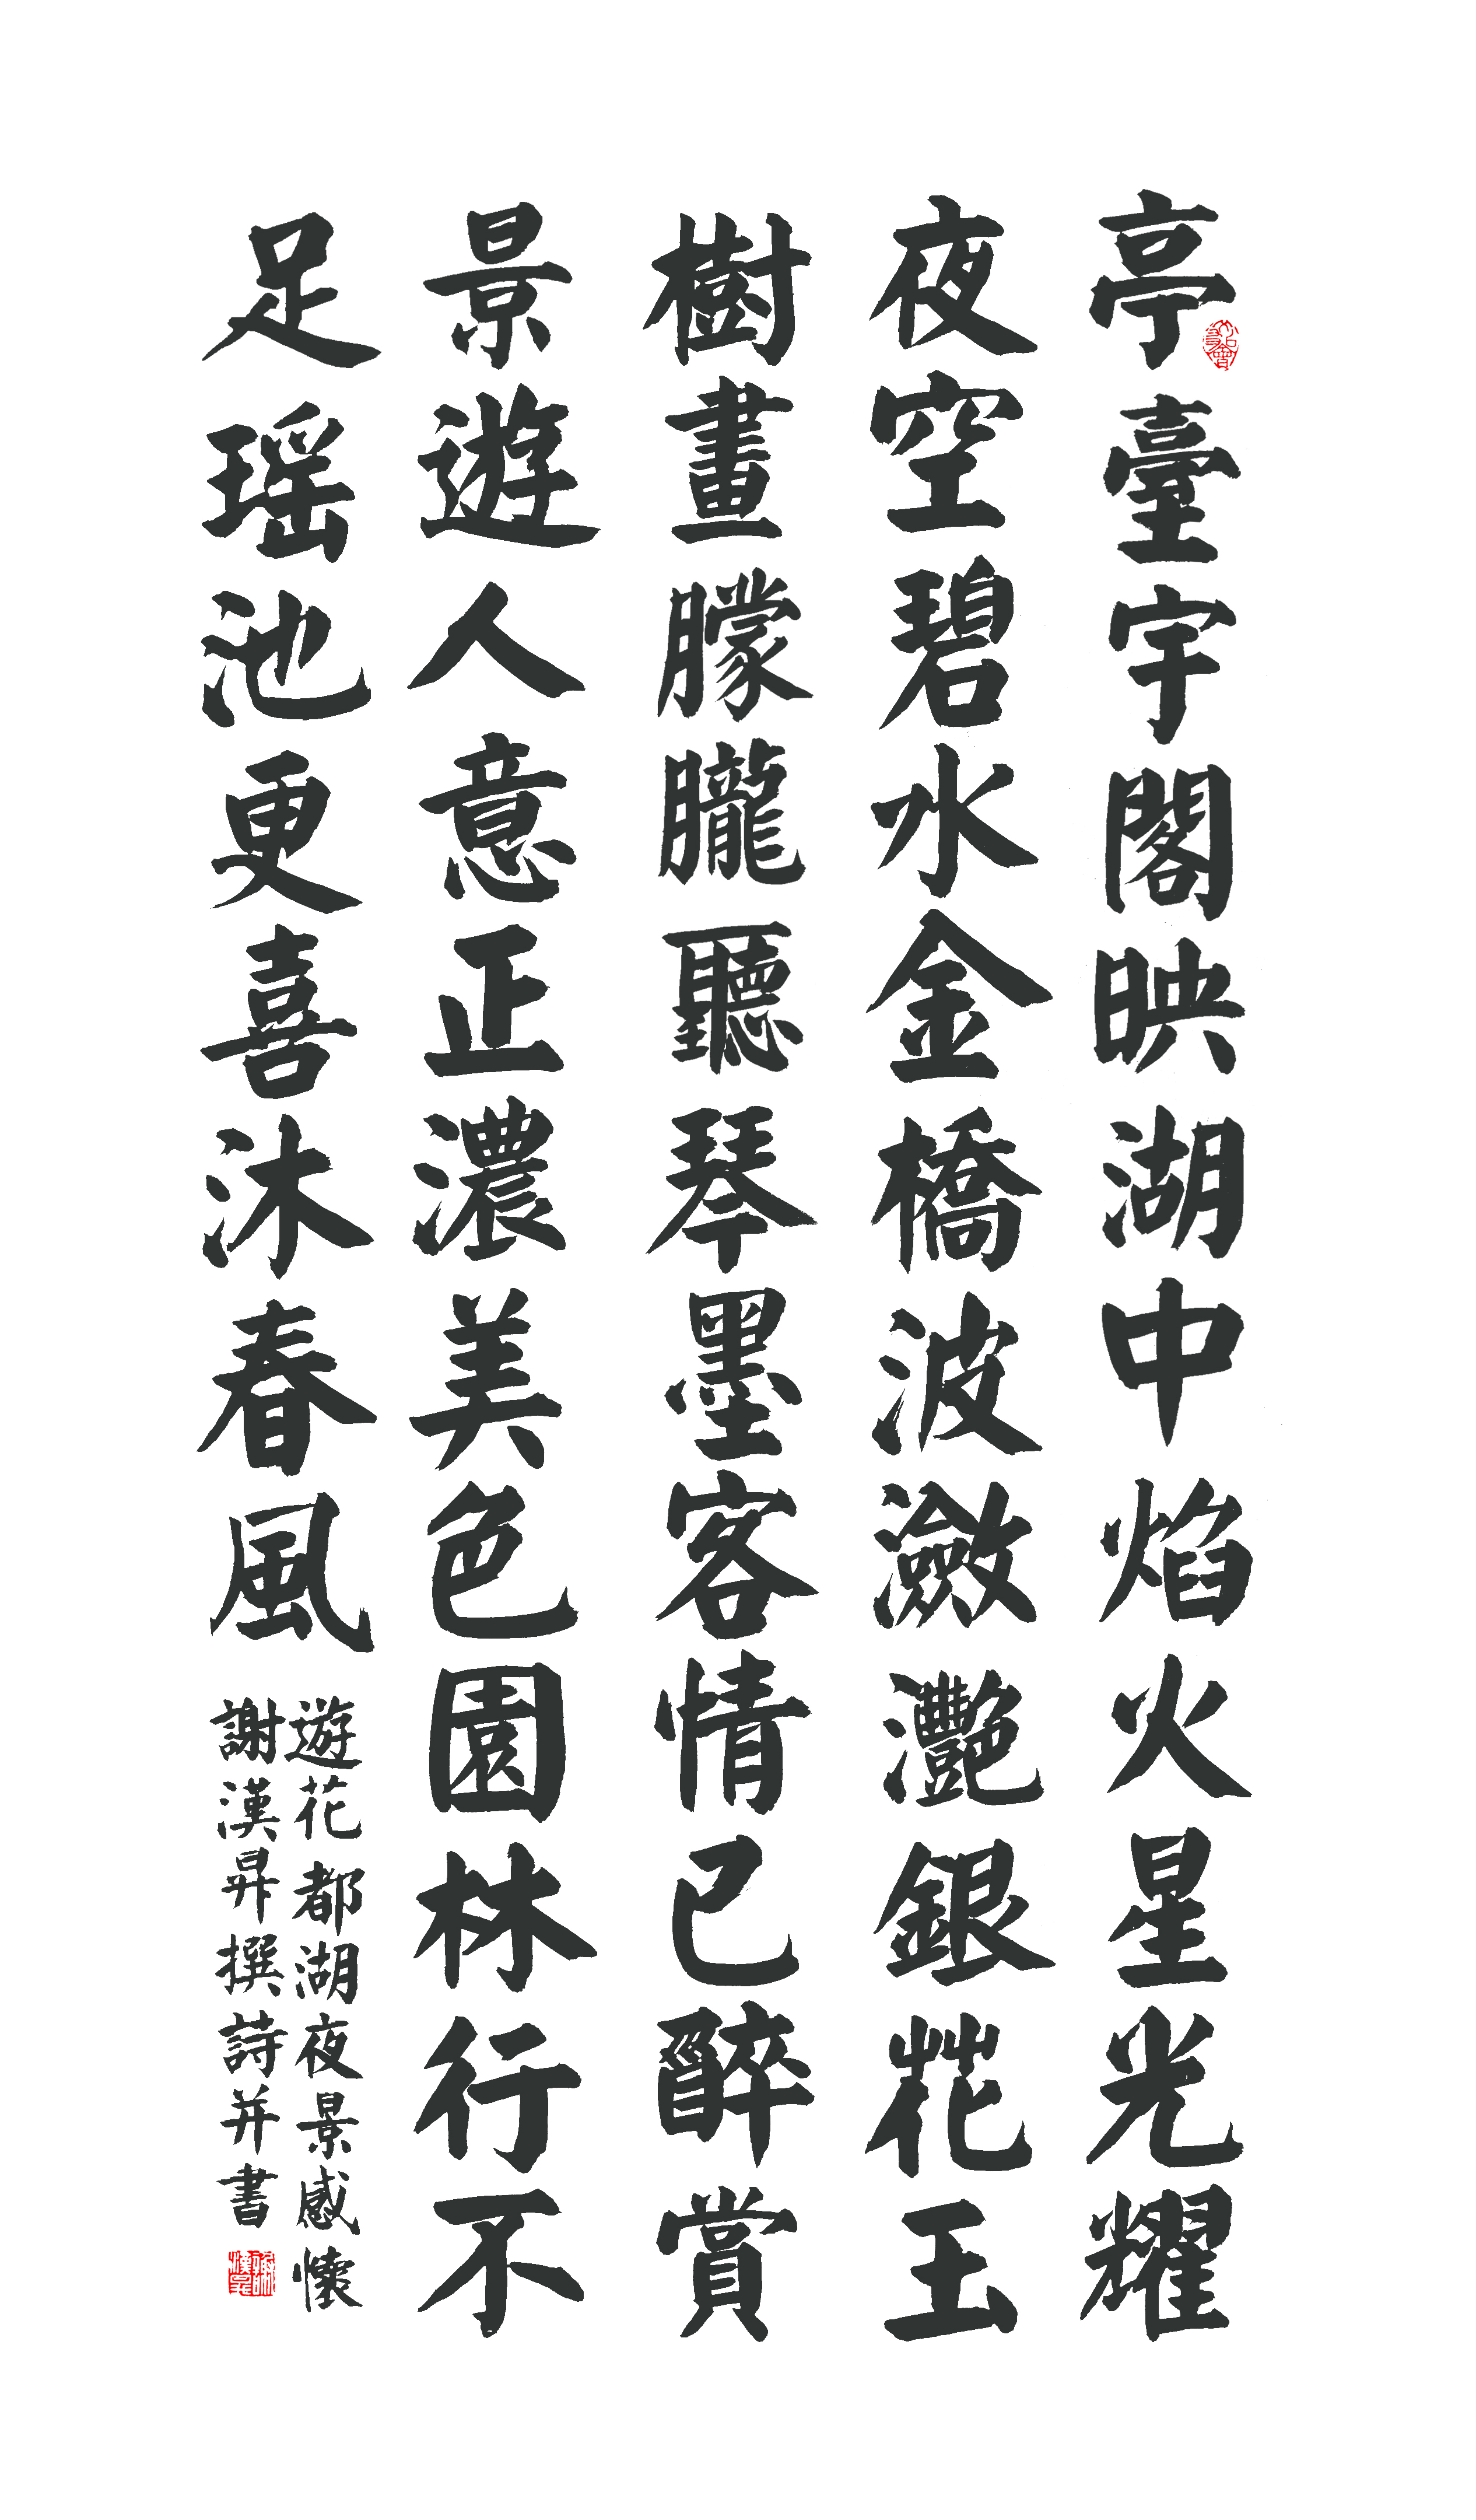 亭臺宇閣映湖中焰火星光耀
夜空碧水金橋波瀲灧銀花玉
樹畫朦朧聽琴墨客情已醉賞
景遊人意正濃美色園林行不
足瑶池更喜沐春風
遊花都湖夜景感懷
謝漢昇撰詩并書